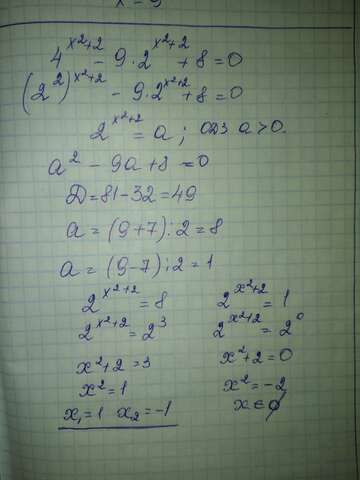 x – 9
4^(x²+2) – 9·2^(x²+2) + 8 = 0
(2²)^(x²+2) – 9·2^(x²+2) + 8 = 0
2^(x²+2) = a ; ОДЗ a > 0.
a² – 9a + 8 = 0
D = 81 – 32 = 49
a = (9+7) : 2 = 8
a = (9–7) : 2 = 1
2^(x²+2) = 8
2^(x²+2) = 2³
x²+2 = 3
x² = 1
x₁ = 1 x₂ = –1
2^(x²+2) = 1
2^(x²+2) = 2⁰
x²+2 = 0
x² = –2
x ∈ ∅